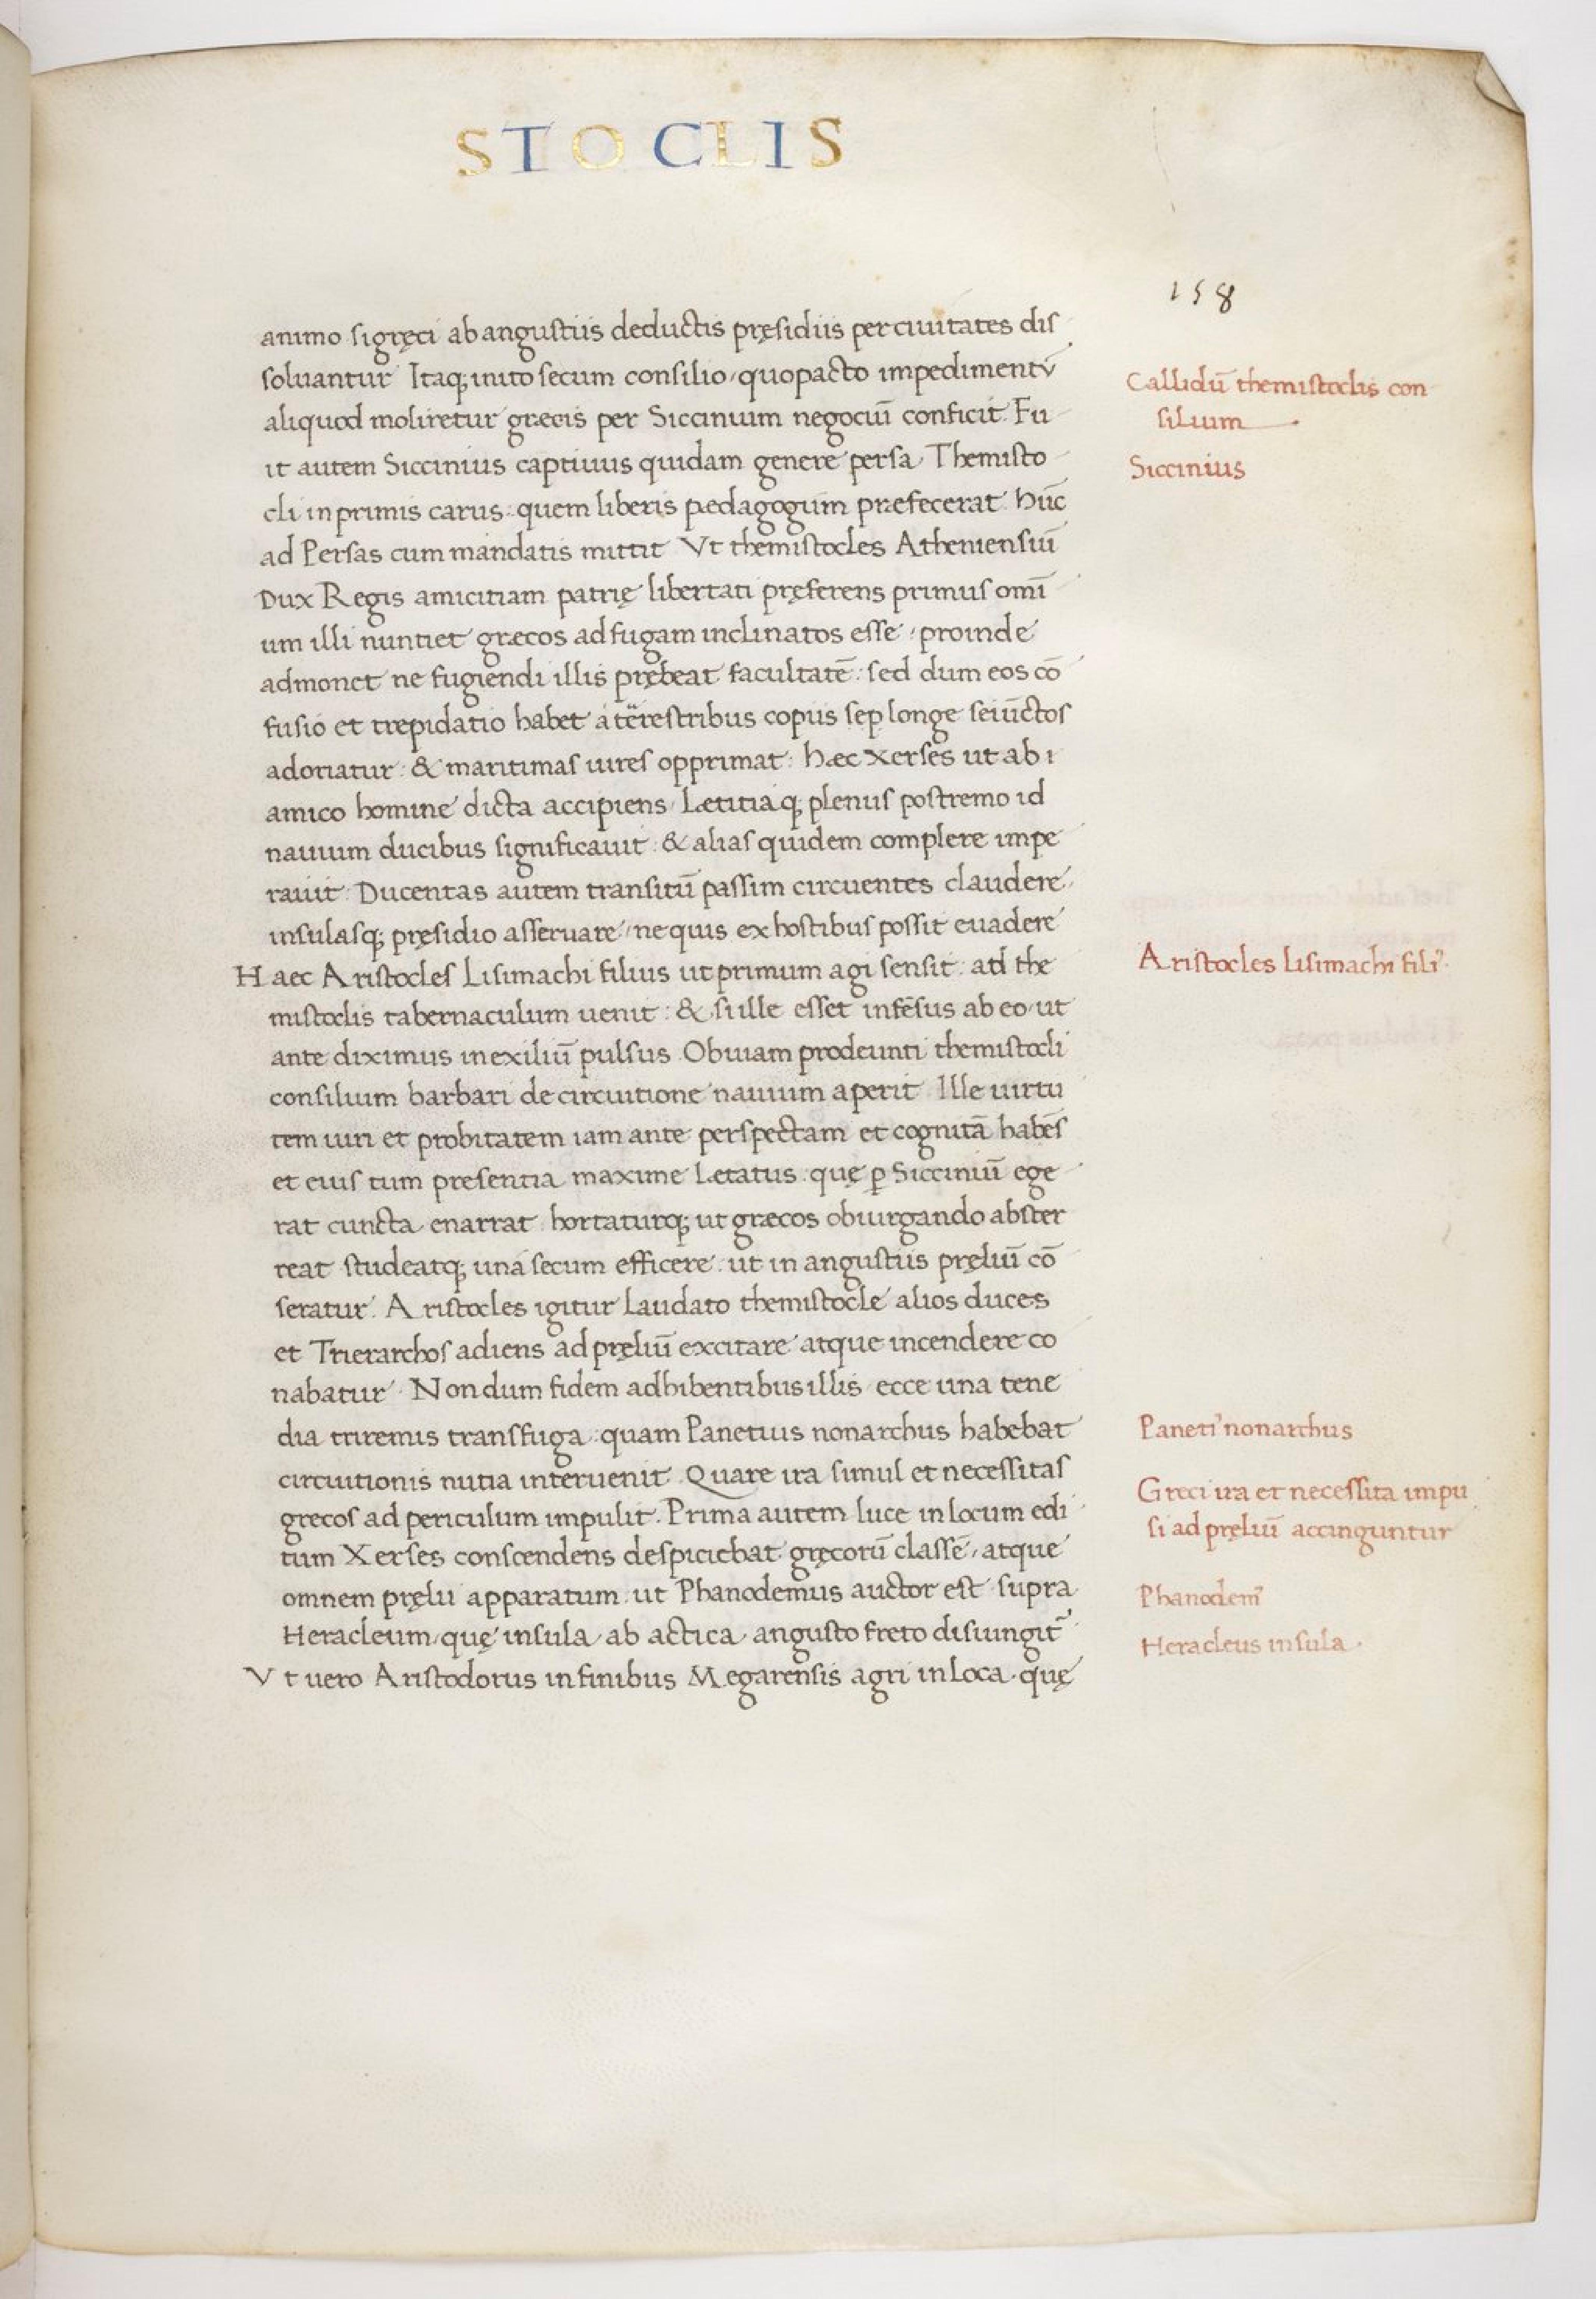 STOCLIS
158
animo si gręci ab angustiis deductis pręsidiis per ciuitates dis
soluantur Itaq; inito secum consilio, quo pacto impedimentū
aliquod moliretur græcis per Siccinium negociū conficit. Fu
it autem Siccinius captiuus quidam genere persa Themisto
cli in primis carus: quem liberis pædagogum præfecerat. hūc
ad Persas cum mandatis mittit Vt themistocles Atheniensiū
Dux Regis amicitiam patrię libertati pręferens primus omi̅
um illi nuntiet græcos ad fugam inclinatos esse, proinde
admonet ne fugiendi illis prębeat facultatē: sed dum eos cō
fusio et trepidatio habet a terrestribus copiis sep longe seiūctos
adoriatur: & maritimas uires opprimat: hæc Xerses ut ab i
amico homine dicta accipiens Lætitiaq; plenus postremo id
nauium ducibus significauit: & alias quidem complere impe
rauit Ducentas autem transitū passim circuentes claudere
insulasq; pręsidio asseruare, ne quis ex hostibus possit euadere
Haec Aristocles Lisimachi filius ut primum agi sensit: ad the
mistoclis tabernaculum uenit: & si ille esset infēsus ab eo, ut
ante diximus in exiliū pulsus. Obuiam prodeunti themistocli
consilium barbari de circuitione nauium aperit Ille uirtu
tem uiri et probitatem iam ante perspectam et cognitā habēs
et eius tum presentia maxime Lætatus. quę ꝑ Sicciniū ege
rat cuncta enarrat hortaturq; ut græcos obiurgando abster
reat studeatq; una secum efficere. ut in angustiis pręliū cō
seratur. Aristocles igitur Laudato themistocle alios duces
et Trierarchos adiens ad pręliū excitare atque incendere co
nabatur. Nondum fidem adhibentibus illis ecce una tene
dia triremis transfuga: quam Panetius nonarchus habebat
circuitionis nutia interuenit. Quare ira simul et necessitas
grecos ad periculum impulit. Prima autem luce in locum edi
tum Xerses conscendens despiciebat gręcorū classē, atque
omnem pręlii apparatum. ut Phanodemus auctor est supra
Heracleum, quę insula ab actica angusto freto disiungit᷑
Vt uero Aristodorus in finibus Megarensis agri in Loca. quę
Callidū themistoclis con
silium
Siccinius
Aristocles Lisimachi fili᾽.
Paneti᾽ nonarchus
Greci ira et necessita impu
si ad pręliū accinguntur
Phanodem᾽
Heracleus insula.